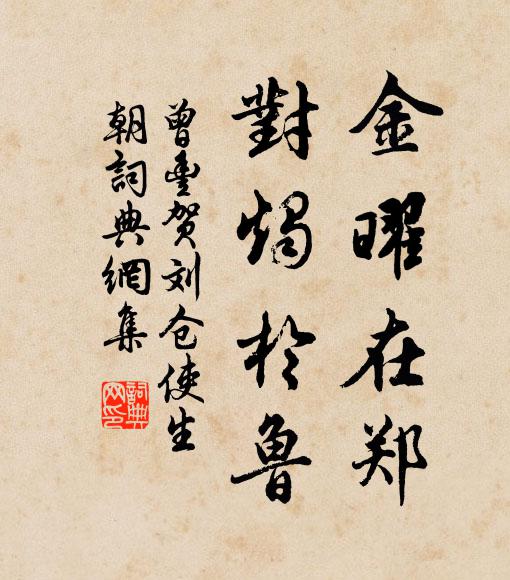 金曜在郑
對燭於魯
曾豊贺刘仓使生
朝詞典網集
詞典
网印